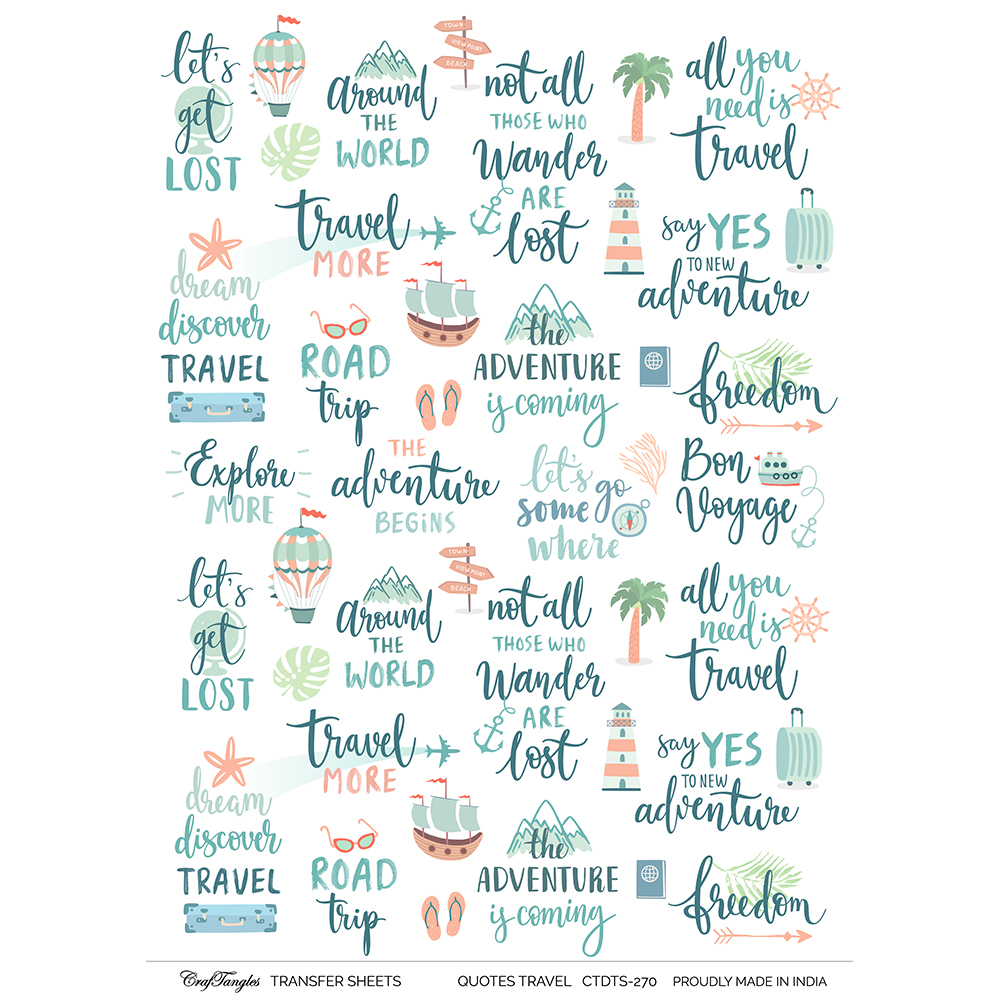 let's
get
LOST
around
THE
WORLD
TOWN
VIEW POINT
BEACH
not all
THOSE WHO
Wander
ARE
lost
all you
need is
travel
travel
MORE
say YES
TO NEW
adventure
dream
discover
TRAVEL
ROAD
trip
the
ADVENTURE
is coming
freedom
Explore
MORE
THE
adventure
BEGINS
let's
go
some
where
Bon
Voyage
let's
get
LOST
around
THE
WORLD
TOWN
VIEW POINT
BEACH
not all
THOSE WHO
Wander
ARE
lost
all you
need is
travel
travel
MORE
say YES
TO NEW
adventure
dream
discover
TRAVEL
ROAD
trip
the
ADVENTURE
is coming
freedom
CrafTangles TRANSFER SHEETS QUOTES TRAVEL CTDTS-270 PROUDLY MADE IN INDIA